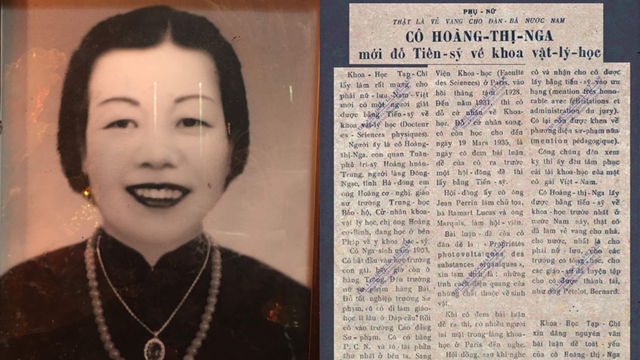 PHỤ - NỮ
THẬT LÀ VẺ VANG CHO ĐÀN-BÀ NƯỚC NAM
CÔ HOÀNG-THỊ-NGA
mới đỗ Tiến-sỹ về khoa vật-lý-học
Khoa - Học Tạp - Chí
lấy làm rất mừng cho
phái nữ - lưu Nam-Việt
mới có một người giật
được bằng Tiến-sỹ về
khoa vật-lý học (Docteur
ès - Sciences physiques).
Người ấy là cô Hoàng-
thị-Nga, con quan Tuần-
phủ trí-sỹ Hoàng-huân-
Trung, người làng Đông-
Ngạc, tỉnh Hà-đông em
ông Hoàng cơ-nghị, giáo
sư trường Trung-học
Bảo-hộ, Cử-nhân khoa-
vật-lý học, chị ông Hoàng
cơ-Bình, đang học ở bên
Pháp về y khoa bác-sỹ.
Cô Nga sinh năm 1903.
Cô bắt đầu vào học trường
con gái, bây giờ còn ở
hàng Trống. Đến trường
nữ sư phạm hàng Bài.
Đỗ tốt nghiệp trường Sư
phạm, cô có đi làm giáo-
học ít lâu ở Đáp-cầu. Rồi
cô vào trường Cao đẳng Sư-
phạm. Cô có bằng
P. C. N. và là tái phần
thứ nhất ở bên ta. Sang
Viện Khoa-học (Faculté
des Sciences) ở Paris, vào
hồi tháng tám 1928.
Đến năm 1931, thì cô
đỗ cử nhân về Khoa-
học. Đỗ cử nhân xong,
cô còn học cho đến
ngày 19 Mars 1935, là
ngày cô đem bài luận
đề của cô ra trước
một hội-đồng để thi
lấy bằng Tiến-Sỹ.
Hội-đồng ấy có ông
Jean Perrin làm chủ tọa,
bà Ramart Lucas và ông
Marquis, làm hội-viên.
Bài luận đề của cô
đầu đề là « Propriétés
photovoltaïques des
substances organiques »,
xin tạm dịch là: những
tính cách điện quang của
những chất thuộc về sinh
vật.
Khi cô đem bài luận
đề ra thi, có nhiều người
tai mắt trong làng khoa-
học ở Paris đến nghe.
Hội đồng, sau khi nghe
cô và nhận cho cô được
lấy bằng tiến-sỹ vào hạng
ưu hạng (mention très hono-
rable avec félicitations et
admiration du jury).
Cô lại còn được khen về
phương diện sư-phạm nữa
(mention pédagogique).
Công chúng đến xem
kỳ thi ấy đều tấm phục
cái tài khoa-học của một
cô gái Việt-Nam.
Cô Hoàng-thị-Nga lấy
được bằng tiến-sỹ về
khoa-học trước nhất ở
nước Nam này, thật cô
đã làm vẻ vang cho nhà,
cho nước, nhất là cho
phái nữ - lưu, cho các
trường cô tòng-học, cho
các giáo-sư đã luyện tập
cho cô được thành tài,
như ông Petelot, Bernard.
Khoa - Học Tạp - Chí
xin đăng nguyên văn
bài luận đề toát-yếu